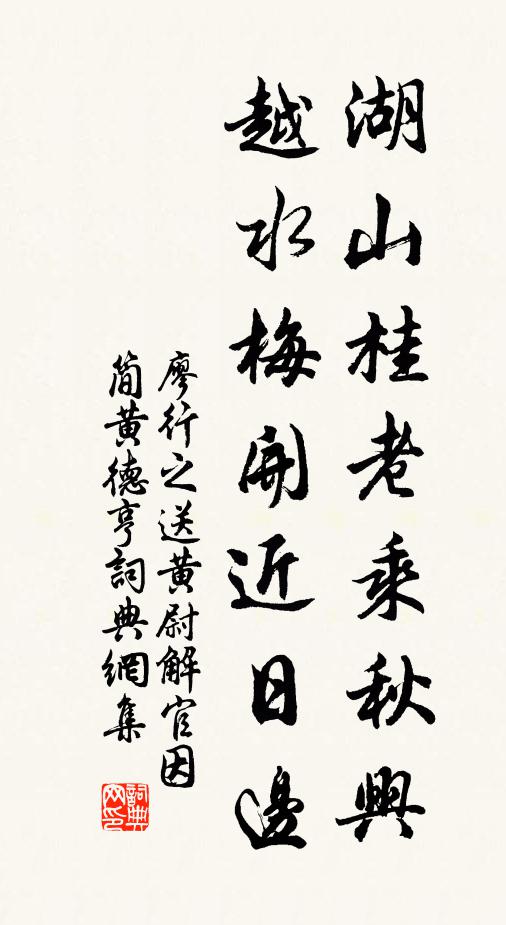 湖山桂老乘秋興
越水梅開近日邊
廖行之送黄尉解官因
简黄德亨詞典網集
詞典
网印